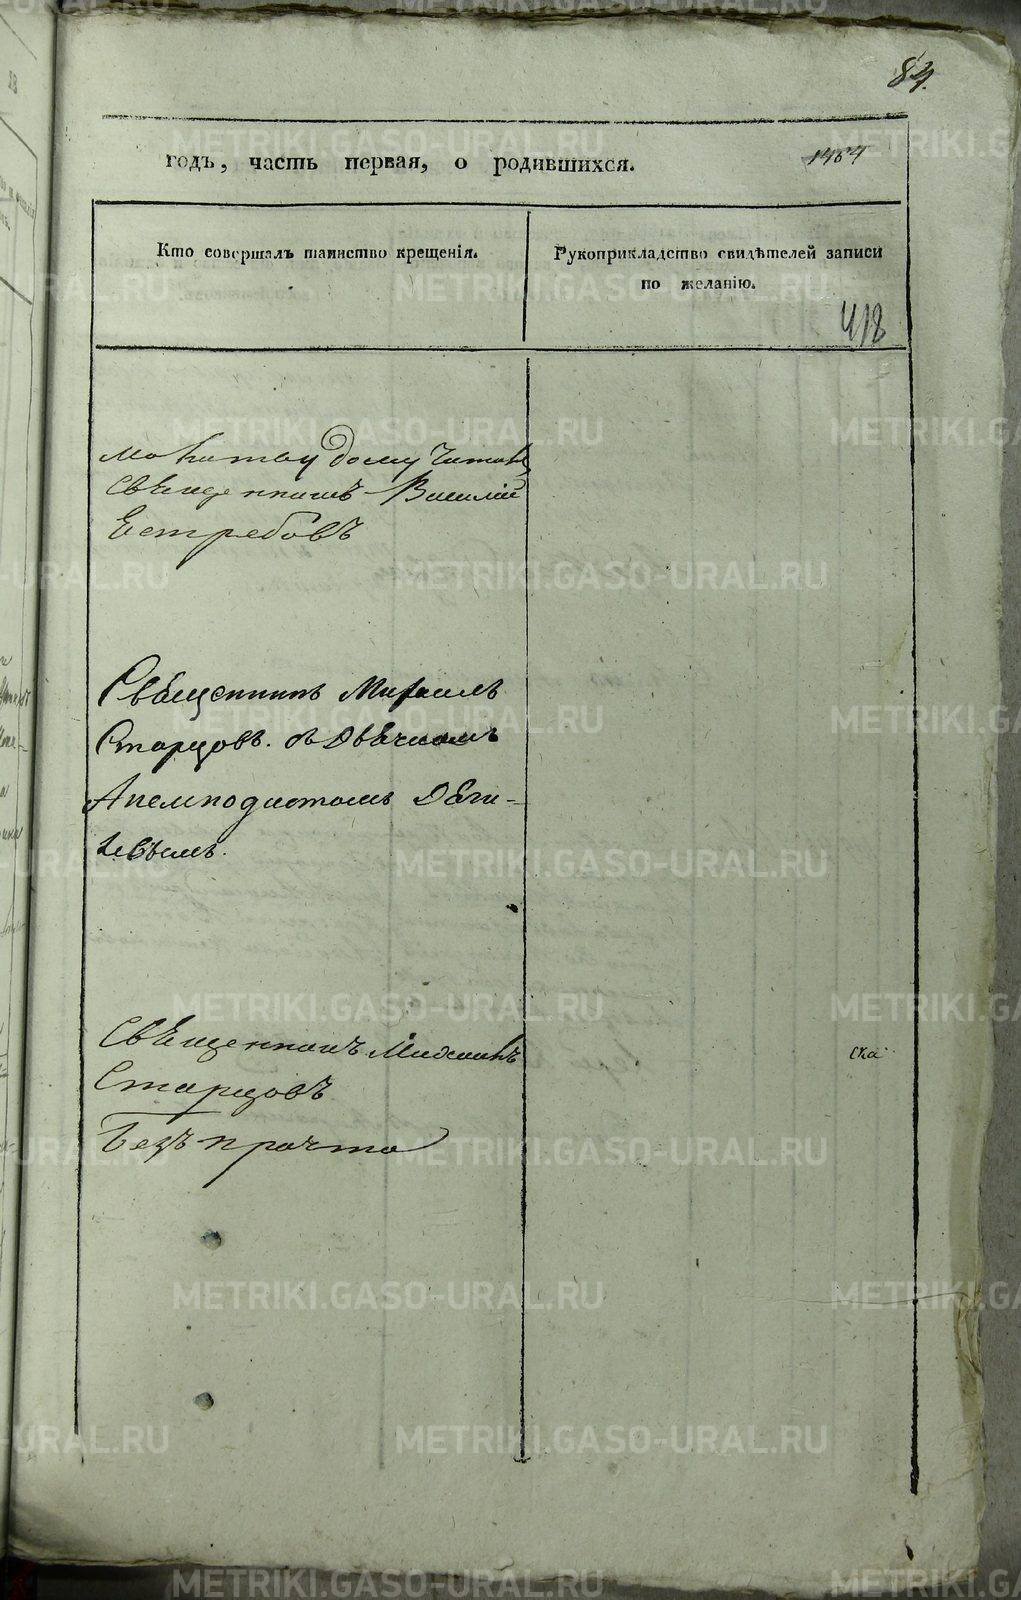 84.
годъ, часть первая, о родившихся.
1484
Кто совершалъ таинство крещенія.
Рукоприкладство свидѣтелей записи
по желанію.
418
молитву дому читалъ
Священникъ Василій
Естребовъ
Священникъ Михаилъ
Старцовъ. съ Дьячкомъ
Апемподистомъ
Священникъ Михаилъ
Старцовъ
Безъ причта
METRIKI.GASO-URAL.RU